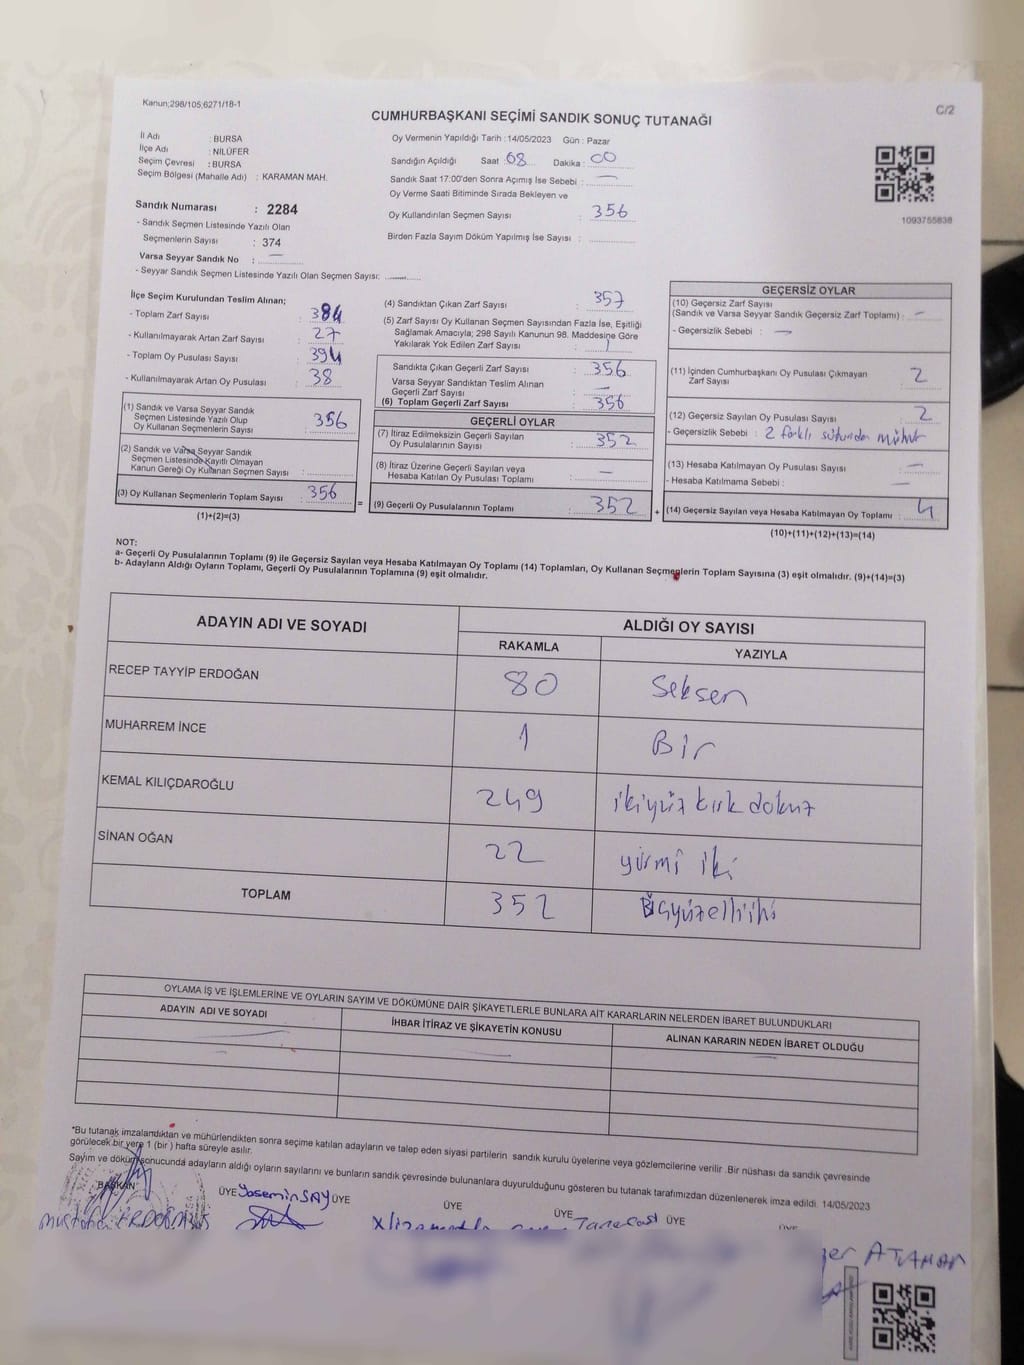 Kanun;298/105;6271/18-1
C/2
CUMHURBAŞKANI SEÇİMİ SANDIK SONUÇ TUTANAĞI
İl Adı : BURSA
İlçe Adı : NİLÜFER
Seçim Çevresi : BURSA
Seçim Bölgesi (Mahalle Adı) : KARAMAN MAH.
Sandık Numarası : 2284
- Sandık Seçmen Listesinde Yazılı Olan
Seçmenlerin Sayısı : 374
Varsa Seyyar Sandık No : —
- Seyyar Sandık Seçmen Listesinde Yazılı Olan Seçmen Sayısı:
Oy Vermenin Yapıldığı Tarih : 14/05/2023 Gün : Pazar
Sandığın Açıldığı Saat : 08 Dakika : 00
Sandık Saat 17:00'den Sonra Açımış İse Sebebi : —
Oy Verme Saati Bitiminde Sırada Bekleyen ve
Oy Kullandırılan Seçmen Sayısı : 356
Birden Fazla Sayım Döküm Yapılmış İse Sayısı :
1093755838
İlçe Seçim Kurulundan Teslim Alınan;
- Toplam Zarf Sayısı : 384
- Kullanılmayarak Artan Zarf Sayısı : 27
- Toplam Oy Pusulası Sayısı : 394
- Kullanılmayarak Artan Oy Pusulası : 38
(1) Sandık ve Varsa Seyyar Sandık
Seçmen Listesinde Yazılı Olup
Oy Kullanan Seçmenlerin Sayısı : 356
(2) Sandık ve Varsa Seyyar Sandık
Seçmen Listesinde Kayıtlı Olmayan
Kanun Gereği Oy Kullanan Seçmen Sayısı :
(3) Oy Kullanan Seçmenlerin Toplam Sayısı : 356
(1)+(2)=(3)
(4) Sandıktan Çıkan Zarf Sayısı : 357
(5) Zarf Sayısı Oy Kullanan Seçmen Sayısından Fazla İse, Eşitliği
Sağlamak Amacıyla; 298 Sayılı Kanunun 98. Maddesine Göre
Yakılarak Yok Edilen Zarf Sayısı : 1
Sandıkta Çıkan Geçerli Zarf Sayısı : 356
Varsa Seyyar Sandıktan Teslim Alınan
Geçerli Zarf Sayısı : —
(6) Toplam Geçerli Zarf Sayısı : 356
GEÇERLİ OYLAR
(7) İtiraz Edilmeksizin Geçerli Sayılan
Oy Pusulalarının Sayısı : 352
(8) İtiraz Üzerine Geçerli Sayılan veya
Hesaba Katılan Oy Pusulası Toplamı : —
(9) Geçerli Oy Pusulalarının Toplamı : 352
GEÇERSİZ OYLAR
(10) Geçersiz Zarf Sayısı
(Sandık ve Varsa Seyyar Sandık Geçersiz Zarf Toplamı) : —
- Geçersizlik Sebebi : —
(11) İçinden Cumhurbaşkanı Oy Pusulası Çıkmayan
Zarf Sayısı : 2
(12) Geçersiz Sayılan Oy Pusulası Sayısı : 2
- Geçersizlik Sebebi : 2 farklı sütundan mühür
(13) Hesaba Katılmayan Oy Pusulası Sayısı : —
- Hesaba Katılmama Sebebi : —
(14) Geçersiz Sayılan veya Hesaba Katılmayan Oy Toplamı : 4
(10)+(11)+(12)+(13)=(14)
NOT:
a- Geçerli Oy Pusulalarının Toplamı (9) ile Geçersiz Sayılan veya Hesaba Katılmayan Oy Toplamı (14) Toplamları, Oy Kullanan Seçmenlerin Toplam Sayısına (3) eşit olmalıdır. (9)+(14)=(3)
b- Adayların Aldığı Oyların Toplamı, Geçerli Oy Pusulalarının Toplamına (9) eşit olmalıdır.
ADAYIN ADI VE SOYADI ALDIĞI OY SAYISI
RAKAMLA YAZIYLA
RECEP TAYYİP ERDOĞAN 80 Seksen
MUHARREM İNCE 1 Bir
KEMAL KILIÇDAROĞLU 249 ikiyüz kırk dokuz
SİNAN OĞAN 22 yirmi iki
TOPLAM 352
OYLAMA İŞ VE İŞLEMLERİNE VE OYLARIN SAYIM VE DÖKÜMÜNE DAİR ŞİKAYETLERLE BUNLARA AİT KARARLARIN NELERDEN İBARET BULUNDUKLARI
ADAYIN ADI VE SOYADI İHBAR İTİRAZ VE ŞİKAYETİN KONUSU ALINAN KARARIN NEDEN İBARET OLDUĞU
*Bu tutanak imzalandıktan ve mühürlendikten sonra seçime katılan adayların ve talep eden siyasi partilerin sandık kurulu üyelerine veya gözlemcilerine verilir. Bir nüshası da sandık çevresinde
görülecek bir yere 1 (bir ) hafta süreyle asılır.
Sayım ve döküm sonucunda adayların aldığı oyların sayılarını ve bunların sandık çevresinde bulunanlara duyurulduğunu gösteren bu tutanak tarafımızdan düzenlenerek imza edildi. 14/05/2023
BAŞKAN ÜYE Yasemin SAY ÜYE ÜYE ÜYE ÜYE ÜYE
ATAMAN